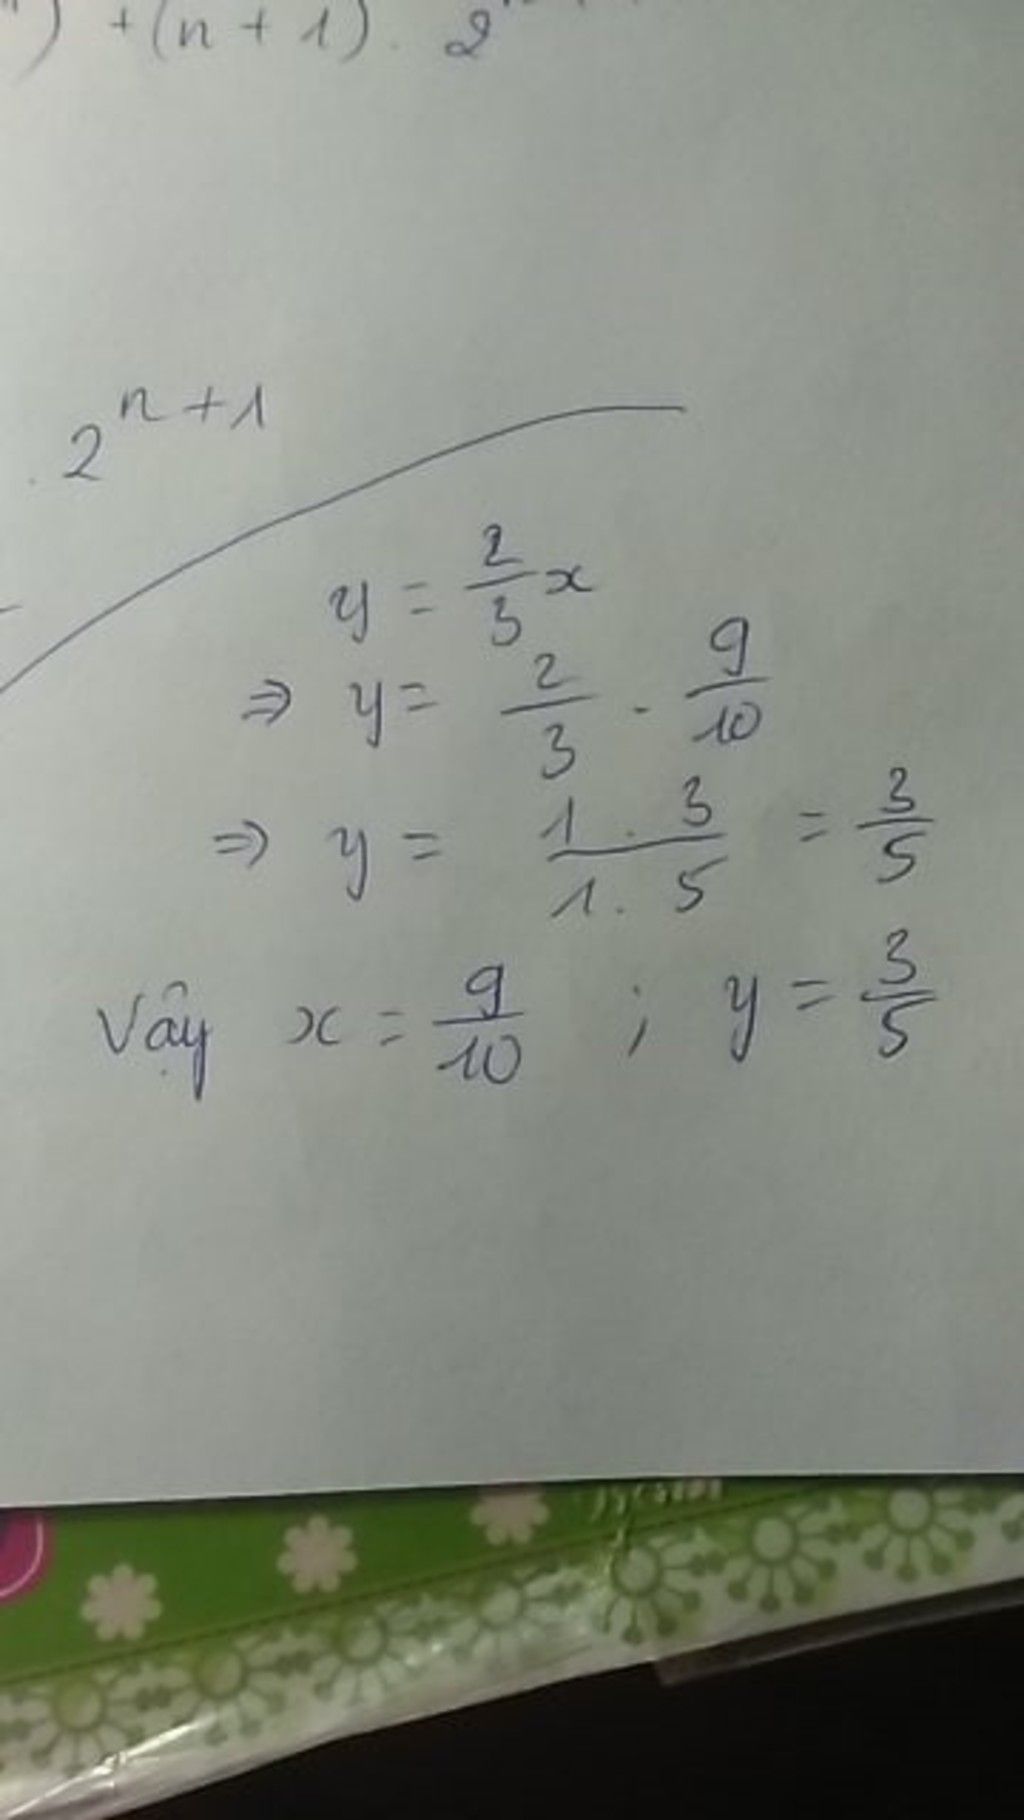 ) + (n + 1) . 2
. 2^{n+1}
y = \frac{2}{3}x
⇒ y = \frac{2}{3} . \frac{9}{10}
⇒ y = \frac{1 . 3}{1 . 5} = \frac{3}{5}
Vậy x = \frac{9}{10} ; y = \frac{3}{5}